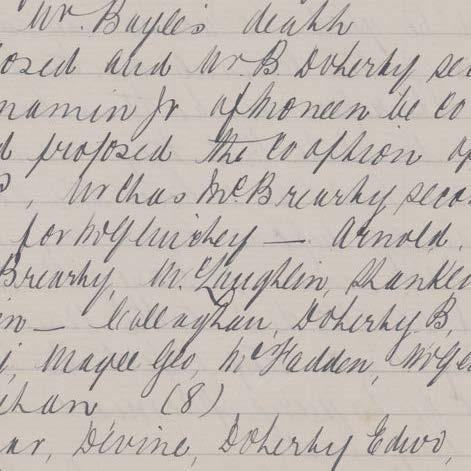 Mr. Bayle's death
osed and Mr. B. Doherty sec
namin Jr of Moneen be Co
d proposed the Co option of
Mr Chas McBrearty secon
for McGlinchey — Arnold.
Brearty, McLaughlin, Shankl
in — Callaghan, Doherty B,
Magee Geo, McFadden, McGl
ehan (8)
ar, Devine, Doherty Edwd,